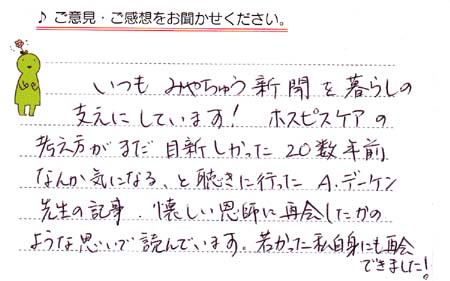 ♪ ご意見・ご感想をお聞かせください。
いつも みやちゅう新聞を暮らしの
支えにしています! ホスピスケアの
考え方がまだ目新しかった20数年前、
なんか気になる、と聴きに行ったA.デーケン
先生の記事、懐しい恩師に再会したかの
ような思いで読んでいます。若かった私自身にも再会
できました!。